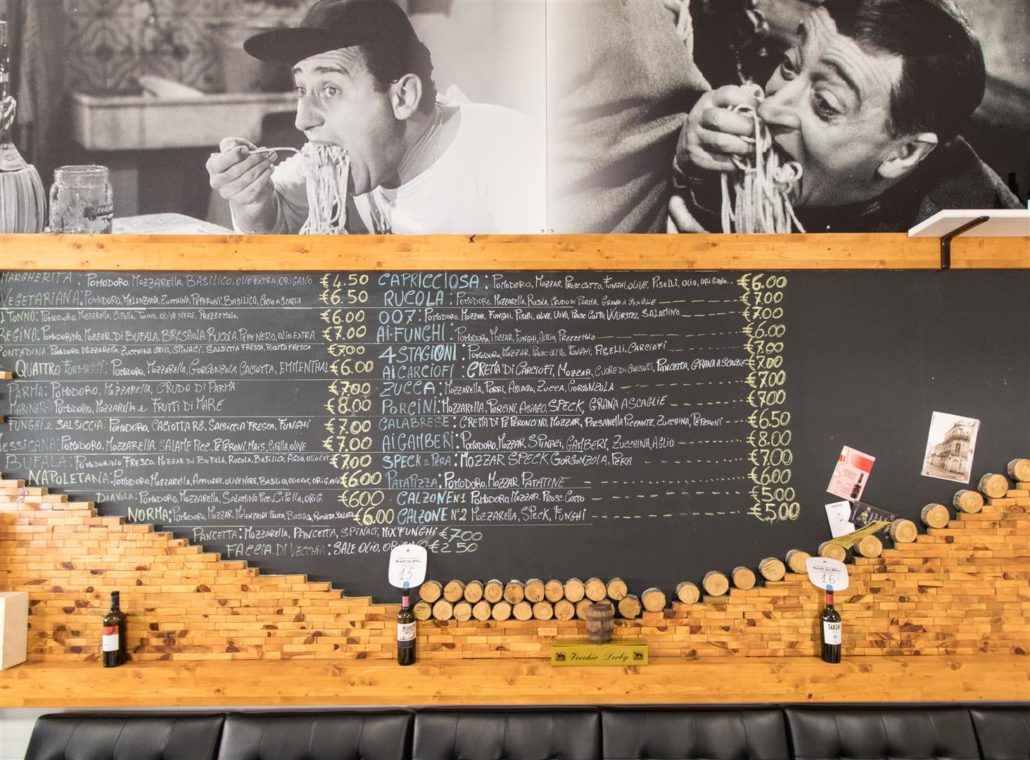 MARGHERITA: POMODORO, MOZZARELLA, BASILICO, OLIO EXTRA, ORIGANO €4.50
VEGETARIANA: POMODORO, MELENZANA, ZUCCHINA, PEPERONI, BASILICO, GRANA A SCAGLIE €6.50
TONNO: POMODORO, MAZZARELLA, CIPOLLA, TONNO, OLIVE NERE, PREZZEMOLO €6.00
REGINA: POMODORINO, MOZZAR. DI BUFALA, BRESAOLA, RUCOLA, PEPE NERO, OLIO EXTRA €7.00
CONTADINA: POMODORINO, MOZZARELLA, ZUCCHINA GRIGL, SPINACI, SALSICCIA FRESCA, RICOTTA FRESCA €7.00
QUATTRO FORMAGGI: POMODORO, MOZZARELLA, GORGONZOLA, CACIOTTA, EMMENTHAL €6.00
PARMA: POMODORO, MOZZARELLA, CRUDO DI PARMA €7.00
MARINARA: POMODORO, MOZZARELLA e FRUTTI DI MARE €8.00
FUNGHI e SALSICCIA: POMODORO, CACIOTTA RG. SALSICCIA FRESCA, FUNGHI €7.00
MESSICANA: POMODORO, MOZZARELLA SALAME PICC. PEPERONI, MAIS, GRIGLIA, OLIVE €7.00
BUFALA: POMODORINO FRESCO, MOZZAR DI BUFALA, RUCOLA, BASILICO, AGLIO, OLIO EXT €7.00
NAPOLETANA: POMODORO, MOZZARELLA, ACCIUGHE, OLIVE NERE, BASILICO, OLIO EX, ORIGANO €6.00
DIAVOLA: POMODORO, MOZZARELLA, SALAMINO PICC. CIPOLLA, ORIG €6.00
NORMA: POMODORO, MOZZAR, MELENZANA FRITTA, BASILICO, RICOTTA SALATA €6.00
PANCETTA: MOZZARELLA, PANCETTA, SPINACI, MIX FUNGHI €7.00
FACCIA DI VECCHIA: SALE OLIO, ORIGANO €2.50
CAPRICCIOSA: POMODORO, MOZZAR, PROSC COTTO, FUNGHI, OLIVE, PISELLI, OLIO, ORIGANO €6.00
RUCOLA: POMODORO, MOZZARELLA, RUCOLA, CRUDO DI PARMA, GRANA A SCAGLIE €7.00
007: POMODORO, MOZZAR, FUNGHI, PISELLI, OLIVE, UOVA, PROSC COTTO, WURSTEL, SALAMINO €7.00
AI FUNGHI: POMODORO, MOZZAR, FUNGHI, AGLIO, PREZZEMOLO €6.00
4 STAGIONI: POMODORO, MOZZAR, PROSC. COTTO, FUNGHI, PISELLI, CARCIOFI €7.00
AI CARCIOFI: CREMA DI CARCIOFI, MOZZAR, CUORE DI CARCIOFI, PANCETTA, GRANA A SCAGLIE €7.00
ZUCCA: MOZZARELLA, PORRI, ASIAGO, ZUCCA, GORGONZOLA €7.00
PORCINI: MOZZARELLA, PORCINI, ASIAGO, SPECK, GRANA A SCAGLIE €7.00
CALABRESE: CREMA DI PEPERONCINO, MOZZAR, PAESANELLA PICCANTE, ZUCCHINA, PEPERONI €6.50
AI GAMBERI: POMODORO, MOZZAR, SPINACI, GAMBERI, ZUCCHINA, AGLIO €8.00
SPECK & PERA: MOZZAR SPECK, GORGONZOLA, PERA €7.00
PATAPIZZA: POMODORO, MOZZAR PATATINE €6.00
CALZONE N°1 POMODORO, MOZZAR PROSC COTTO €5.00
CALZONE N°2 MOZZARELLA, SPECK, FUNGHI €5.00
15
16
Vecchio Derby